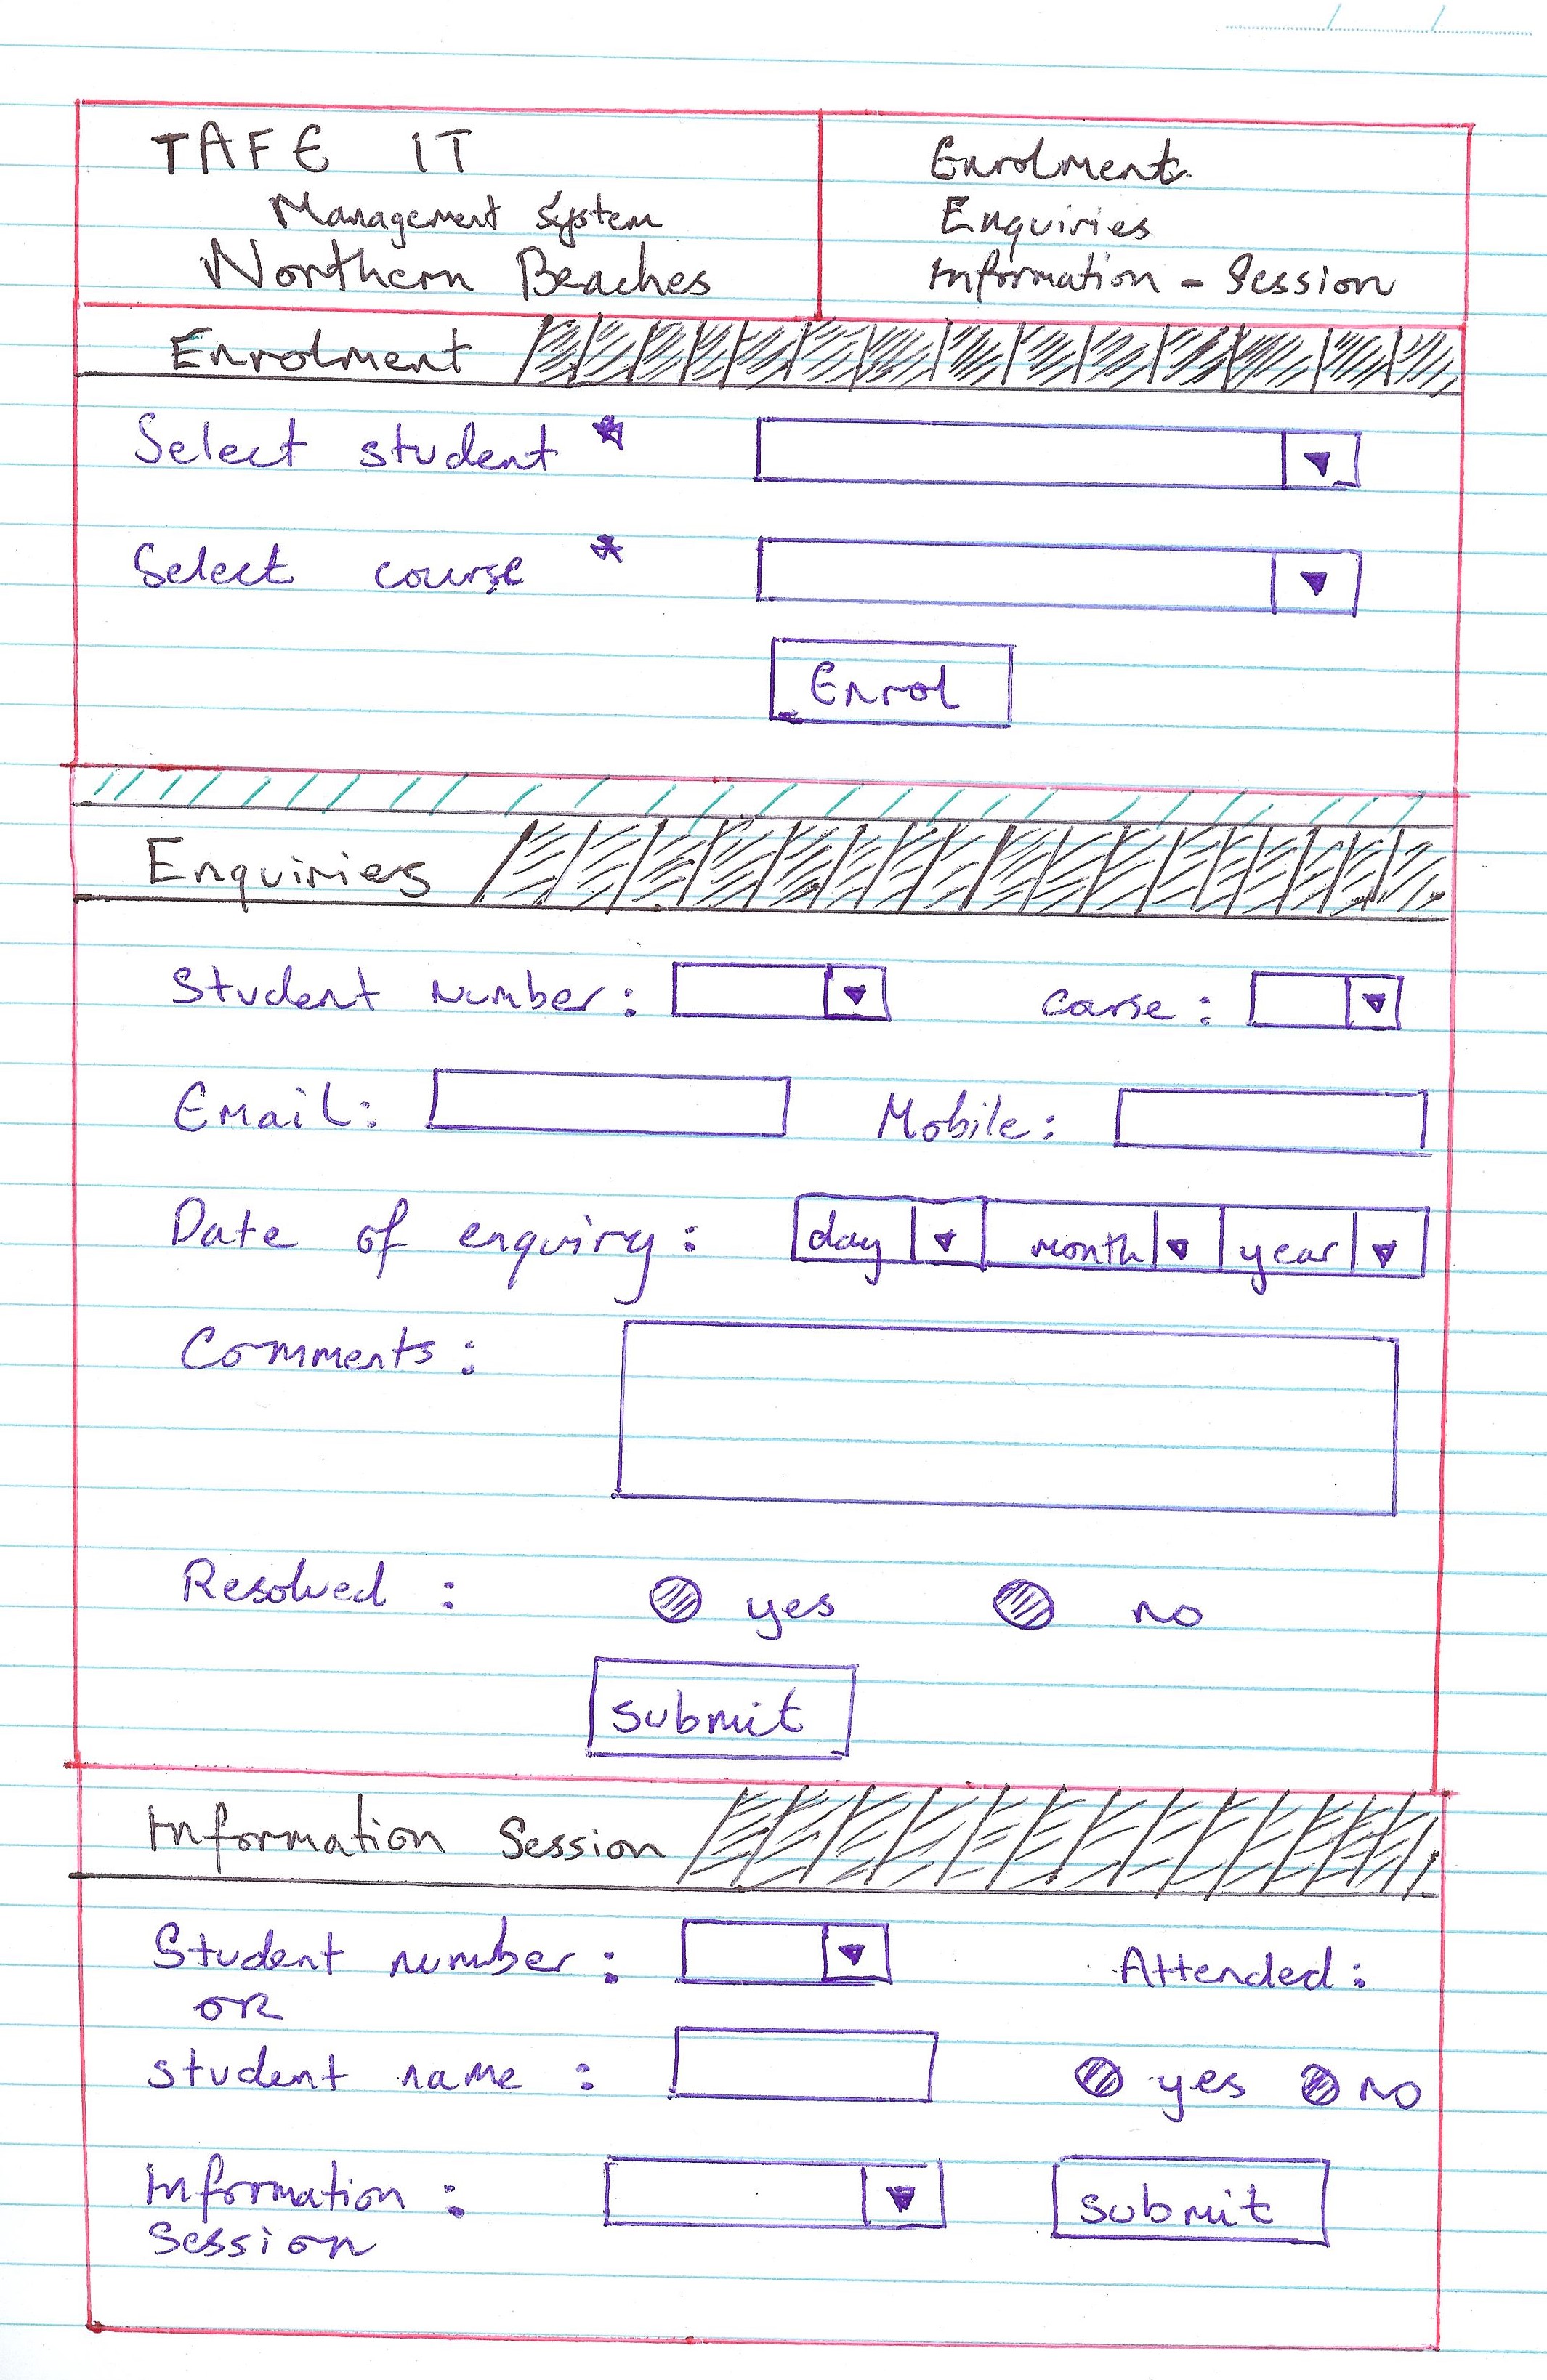 TAFE IT
Management System
Northern Beaches
Enrolment
Enquiries
Information - Session
Enrolment
Select student *
Select course *
Enrol
Enquiries
Student number: course:
Email: Mobile:
Date of enquiry: day month year
Comments:
Resolved: yes no
submit
Information Session
Student number: Attended:
OR
student name: yes no
Information: submit
Session